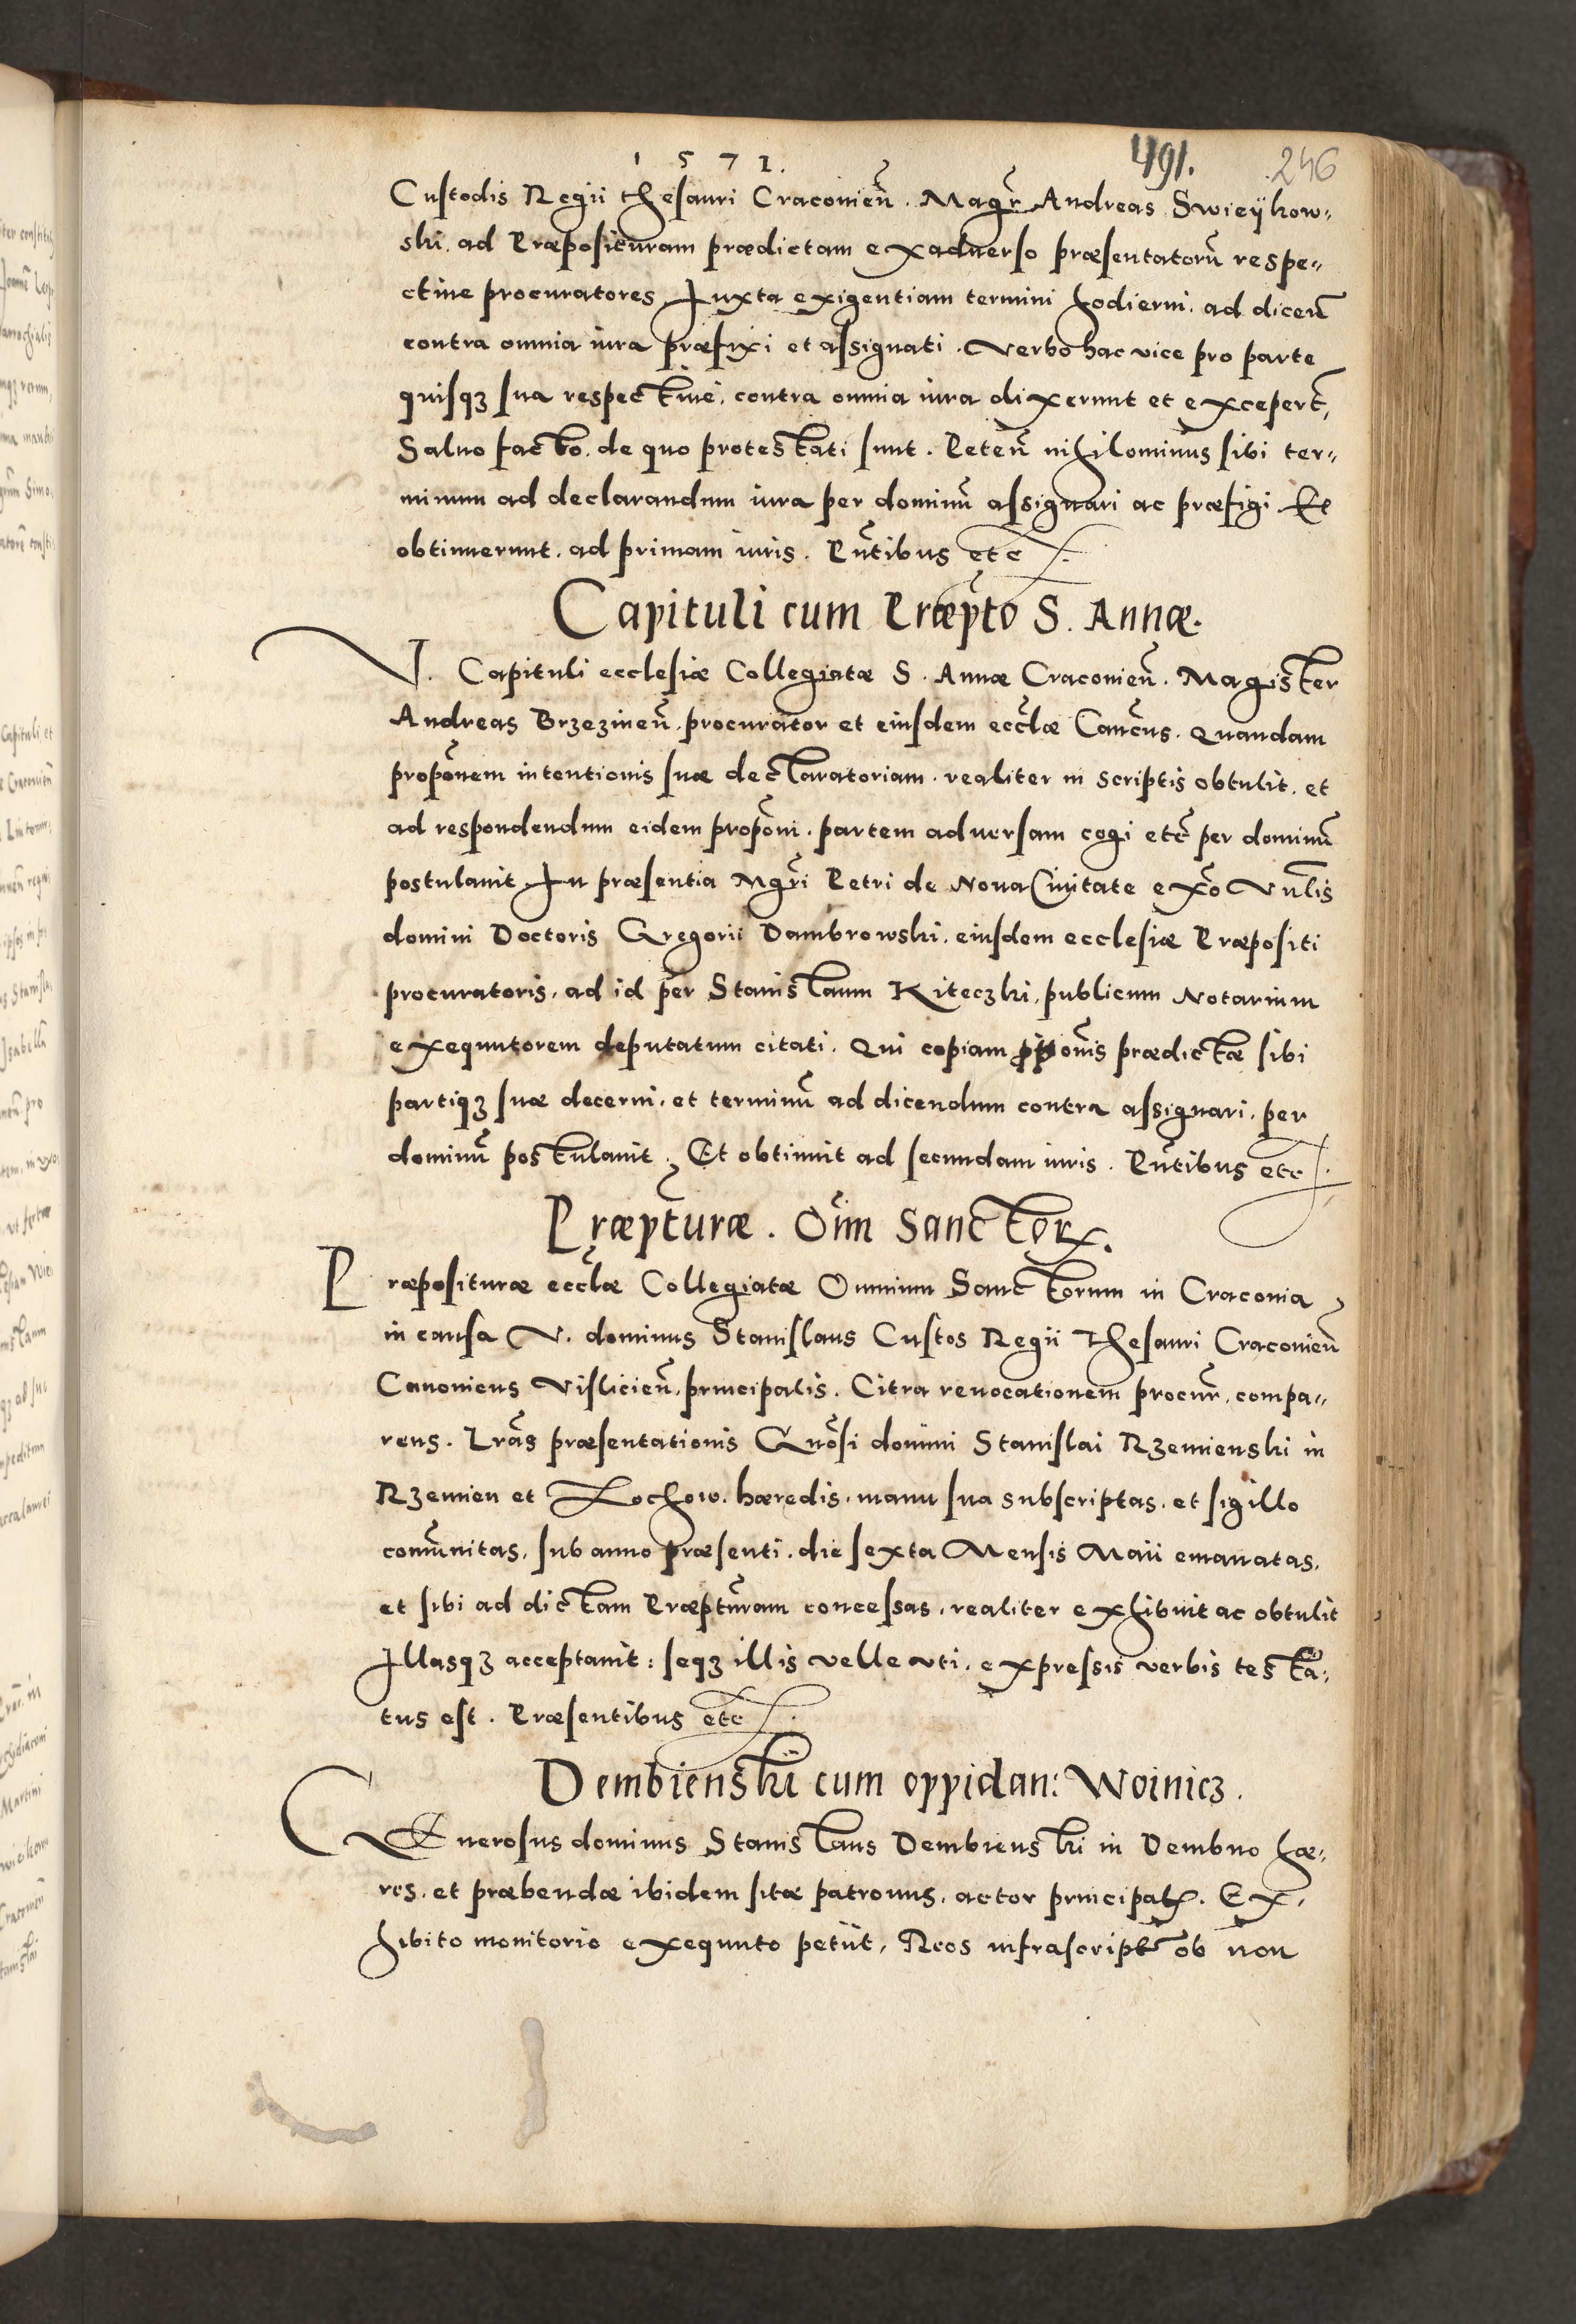 1571.
491.
246
Custodis Regii thesauri Craconien̄. Magr̄ Andreas Swieÿkow-
ski. ad Præposituram prædictam exaduerso præsentatorū respe-
ctiue procuratores Juxta exigentiam termini hodierni. ad dicen̄
contra omnia iura præfixi et assignati. verbo hac vice pro parte
quisqȝ sua respectiuè. contra omnia iura dixerunt et exceper̄t,
Saluo facto. de quo protestati sunt. Peten̄ nihilominus sibi ter-
minum ad declarandum iura per dominū assignari ac præfigi. Et
obtinuerunt. ad primam iuris. Pn̄tibus etc
Capituli cum Præpto S. Annæ.
V. Capituli ecclesiæ Collegiatæ S. Annæ Craconien̄. Magister
Andreas Brzezinen̄. procurator et eiusdem eccłæ Canc̄us. Quandam
propōnem intentionis suæ declaratoriam. realiter in scriptis obtulit. et
ad respondendum eidem propōni. partem aduersam cogi etc̄ per dominū
postulauit. In præsentia Mgr̄i Petri de Noua Ciuitate ex̄o Vn̄lis
domini Doctoris Gregorii Dambrowski. eiusdem ecclesiæ Præpositi
procuratoris, ad id per Stanislaum Kiteczki, publicum Notarium
exequutorem deputatum citati. Qui copiam pp̄onis prædictæ sibi
partiqȝ suæ decerni. et terminū ad dicendum contra assignari. per
dominū postulauit. Et obtinuit ad secundam iuris. Pn̄tibus etc
Præpturæ. Oīm Sanctor.
Præposituræ eccłæ Collegiatæ Omnium Sanctorum in Craconia
in causa V. dominus Stanislaus Custos Regii thesauri Craconien̄
Canonicus Vislicien̄. principalis. Citra reuocationem procur̄. compa-
rens. Lr̄as præsentationis Gn̄osi domini Stanislai Rzemienski in
Rzemien et Lochow. hæredis. manu sua subscriptas. et sigillo
com̄unitas, sub anno præsenti. die sexta Mensis Maii emanatas,
et sibi ad dictam Præpturam concessas, realiter exhibuit ac obtulit
Illasqȝ acceptauit: seqȝ illis velle vti. expressis verbis testa-
tus est. Præsentibus etc
Dembienskii cum oppidan: Woinicz.
Generosus dominus Stanislaus Dembienski in Dembno hæ-
res. et præbendæ ibidem sitæ patronus. actor principalis. Ex-
hibito monitorio exequuto petiit, Reos infrascript ob non